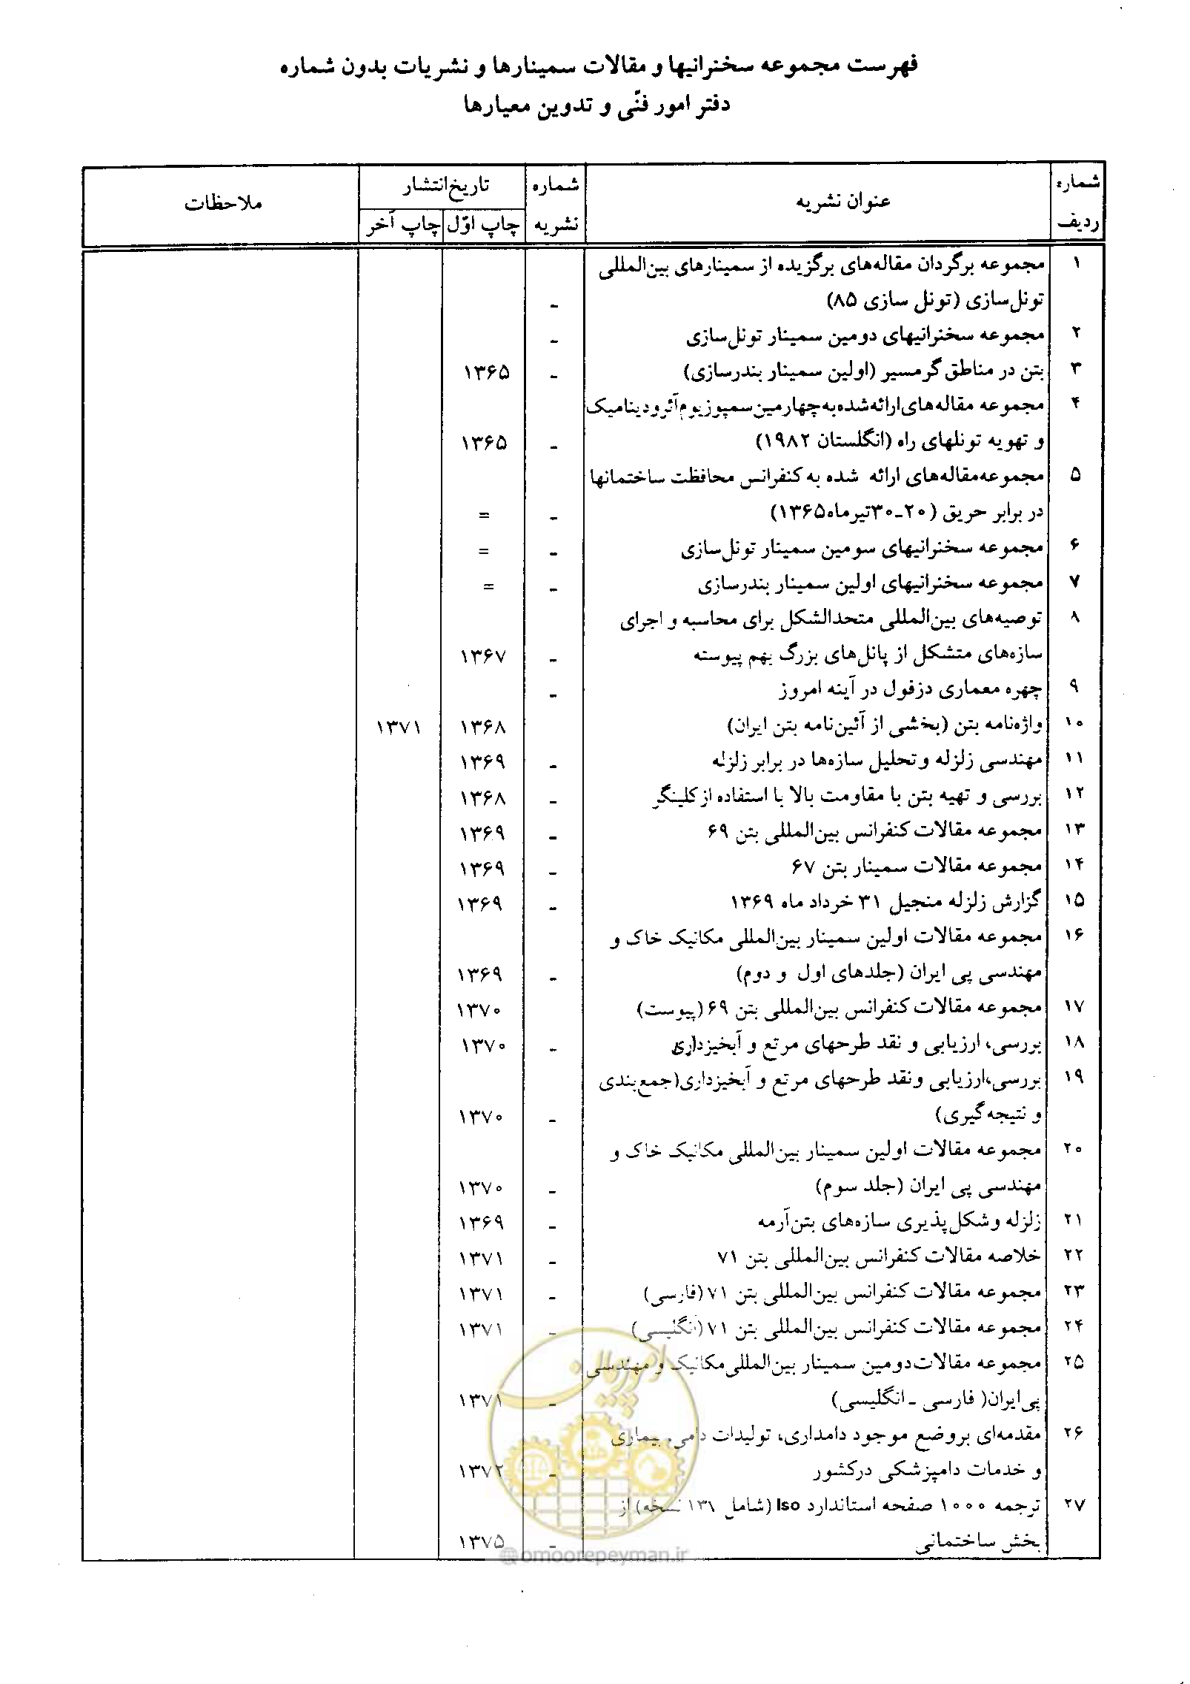 فهرست مجموعه سخنرانیها و مقالات سمینارها و نشریات بدون شماره
دفتر امور فنّی و تدوین معیارها
شماره ردیف | عنوان نشریه | شماره نشریه | تاریخ انتشار | ملاحظات
چاپ اوّل | چاپ آخر
۱ مجموعه برگردان مقاله‌های برگزیده از سمینارهای بین‌المللی
تونل‌سازی (تونل سازی ۸۵) -
۲ مجموعه سخنرانیهای دومین سمینار تونل‌سازی -
۳ بتن در مناطق گرمسیر (اولین سمینار بندرسازی) - ۱۳۶۵
۴ مجموعه مقاله‌های ارائه شده به چهارمین سمپوزیوم آئرودینامیک
و تهویه تونلهای راه (انگلستان ۱۹۸۲) - ۱۳۶۵
۵ مجموعه مقاله‌های ارائه شده به کنفرانس محافظت ساختمانها
در برابر حریق (۲۰-۳۰ تیرماه ۱۳۶۵) - =
۶ مجموعه سخنرانیهای سومین سمینار تونل‌سازی - =
۷ مجموعه سخنرانیهای اولین سمینار بندرسازی - =
۸ توصیه‌های بین‌المللی متحدالشکل برای محاسبه و اجرای
سازه‌های متشکل از پانل‌های بزرگ بهم پیوسته - ۱۳۶۷
۹ چهره معماری دزفول در آینه امروز -
۱۰ واژه‌نامه بتن (بخشی از آئین‌نامه بتن ایران) ۱۳۶۸ ۱۳۷۱
۱۱ مهندسی زلزله و تحلیل سازه‌ها در برابر زلزله - ۱۳۶۹
۱۲ بررسی و تهیه بتن با مقاومت بالا با استفاده از کلینگر - ۱۳۶۸
۱۳ مجموعه مقالات کنفرانس بین‌المللی بتن ۶۹ - ۱۳۶۹
۱۴ مجموعه مقالات سمینار بتن ۶۷ - ۱۳۶۹
۱۵ گزارش زلزله منجیل ۳۱ خرداد ماه ۱۳۶۹ - ۱۳۶۹
۱۶ مجموعه مقالات اولین سمینار بین‌المللی مکانیک خاک و
مهندسی پی ایران (جلدهای اول و دوم) - ۱۳۶۹
۱۷ مجموعه مقالات کنفرانس بین‌المللی بتن ۶۹ (پیوست) ۱۳۷۰
۱۸ بررسی، ارزیابی و نقد طرحهای مرتع و آبخیزداری - ۱۳۷۰
۱۹ بررسی،ارزیابی ونقد طرحهای مرتع و آبخیزداری(جمع‌بندی
و نتیجه‌گیری) - ۱۳۷۰
۲۰ مجموعه مقالات اولین سمینار بین‌المللی مکانیک خاک و
مهندسی پی ایران (جلد سوم) - ۱۳۷۰
۲۱ زلزله و شکل‌پذیری سازه‌های بتن‌آرمه - ۱۳۶۹
۲۲ خلاصه مقالات کنفرانس بین‌المللی بتن ۷۱ - ۱۳۷۱
۲۳ مجموعه مقالات کنفرانس بین‌المللی بتن ۷۱ (فارسی) - ۱۳۷۱
۲۴ مجموعه مقالات کنفرانس بین‌المللی بتن ۷۱ (انگلیسی) - ۱۳۷۱
۲۵ مجموعه مقالات دومین سمینار بین‌المللی مکانیک و مهندسی
پی ایران( فارسی - انگلیسی) - ۱۳۷۱
۲۶ مقدمه‌ای بروضع موجود دامداری، تولیدات دامی، بیماری
و خدمات دامپزشکی درکشور - ۱۳۷۲
۲۷ ترجمه ۱۰۰۰ صفحه استاندارد Iso (شامل ۱۳۱ نسخه) از
بخش ساختمانی - ۱۳۷۵
امور پیمان
@omoorepeyman.ir